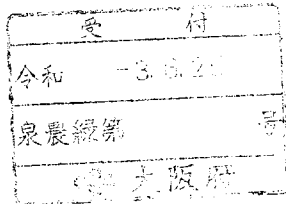 受 付
令和 -3.6.2
泉農緑第 号
大阪府